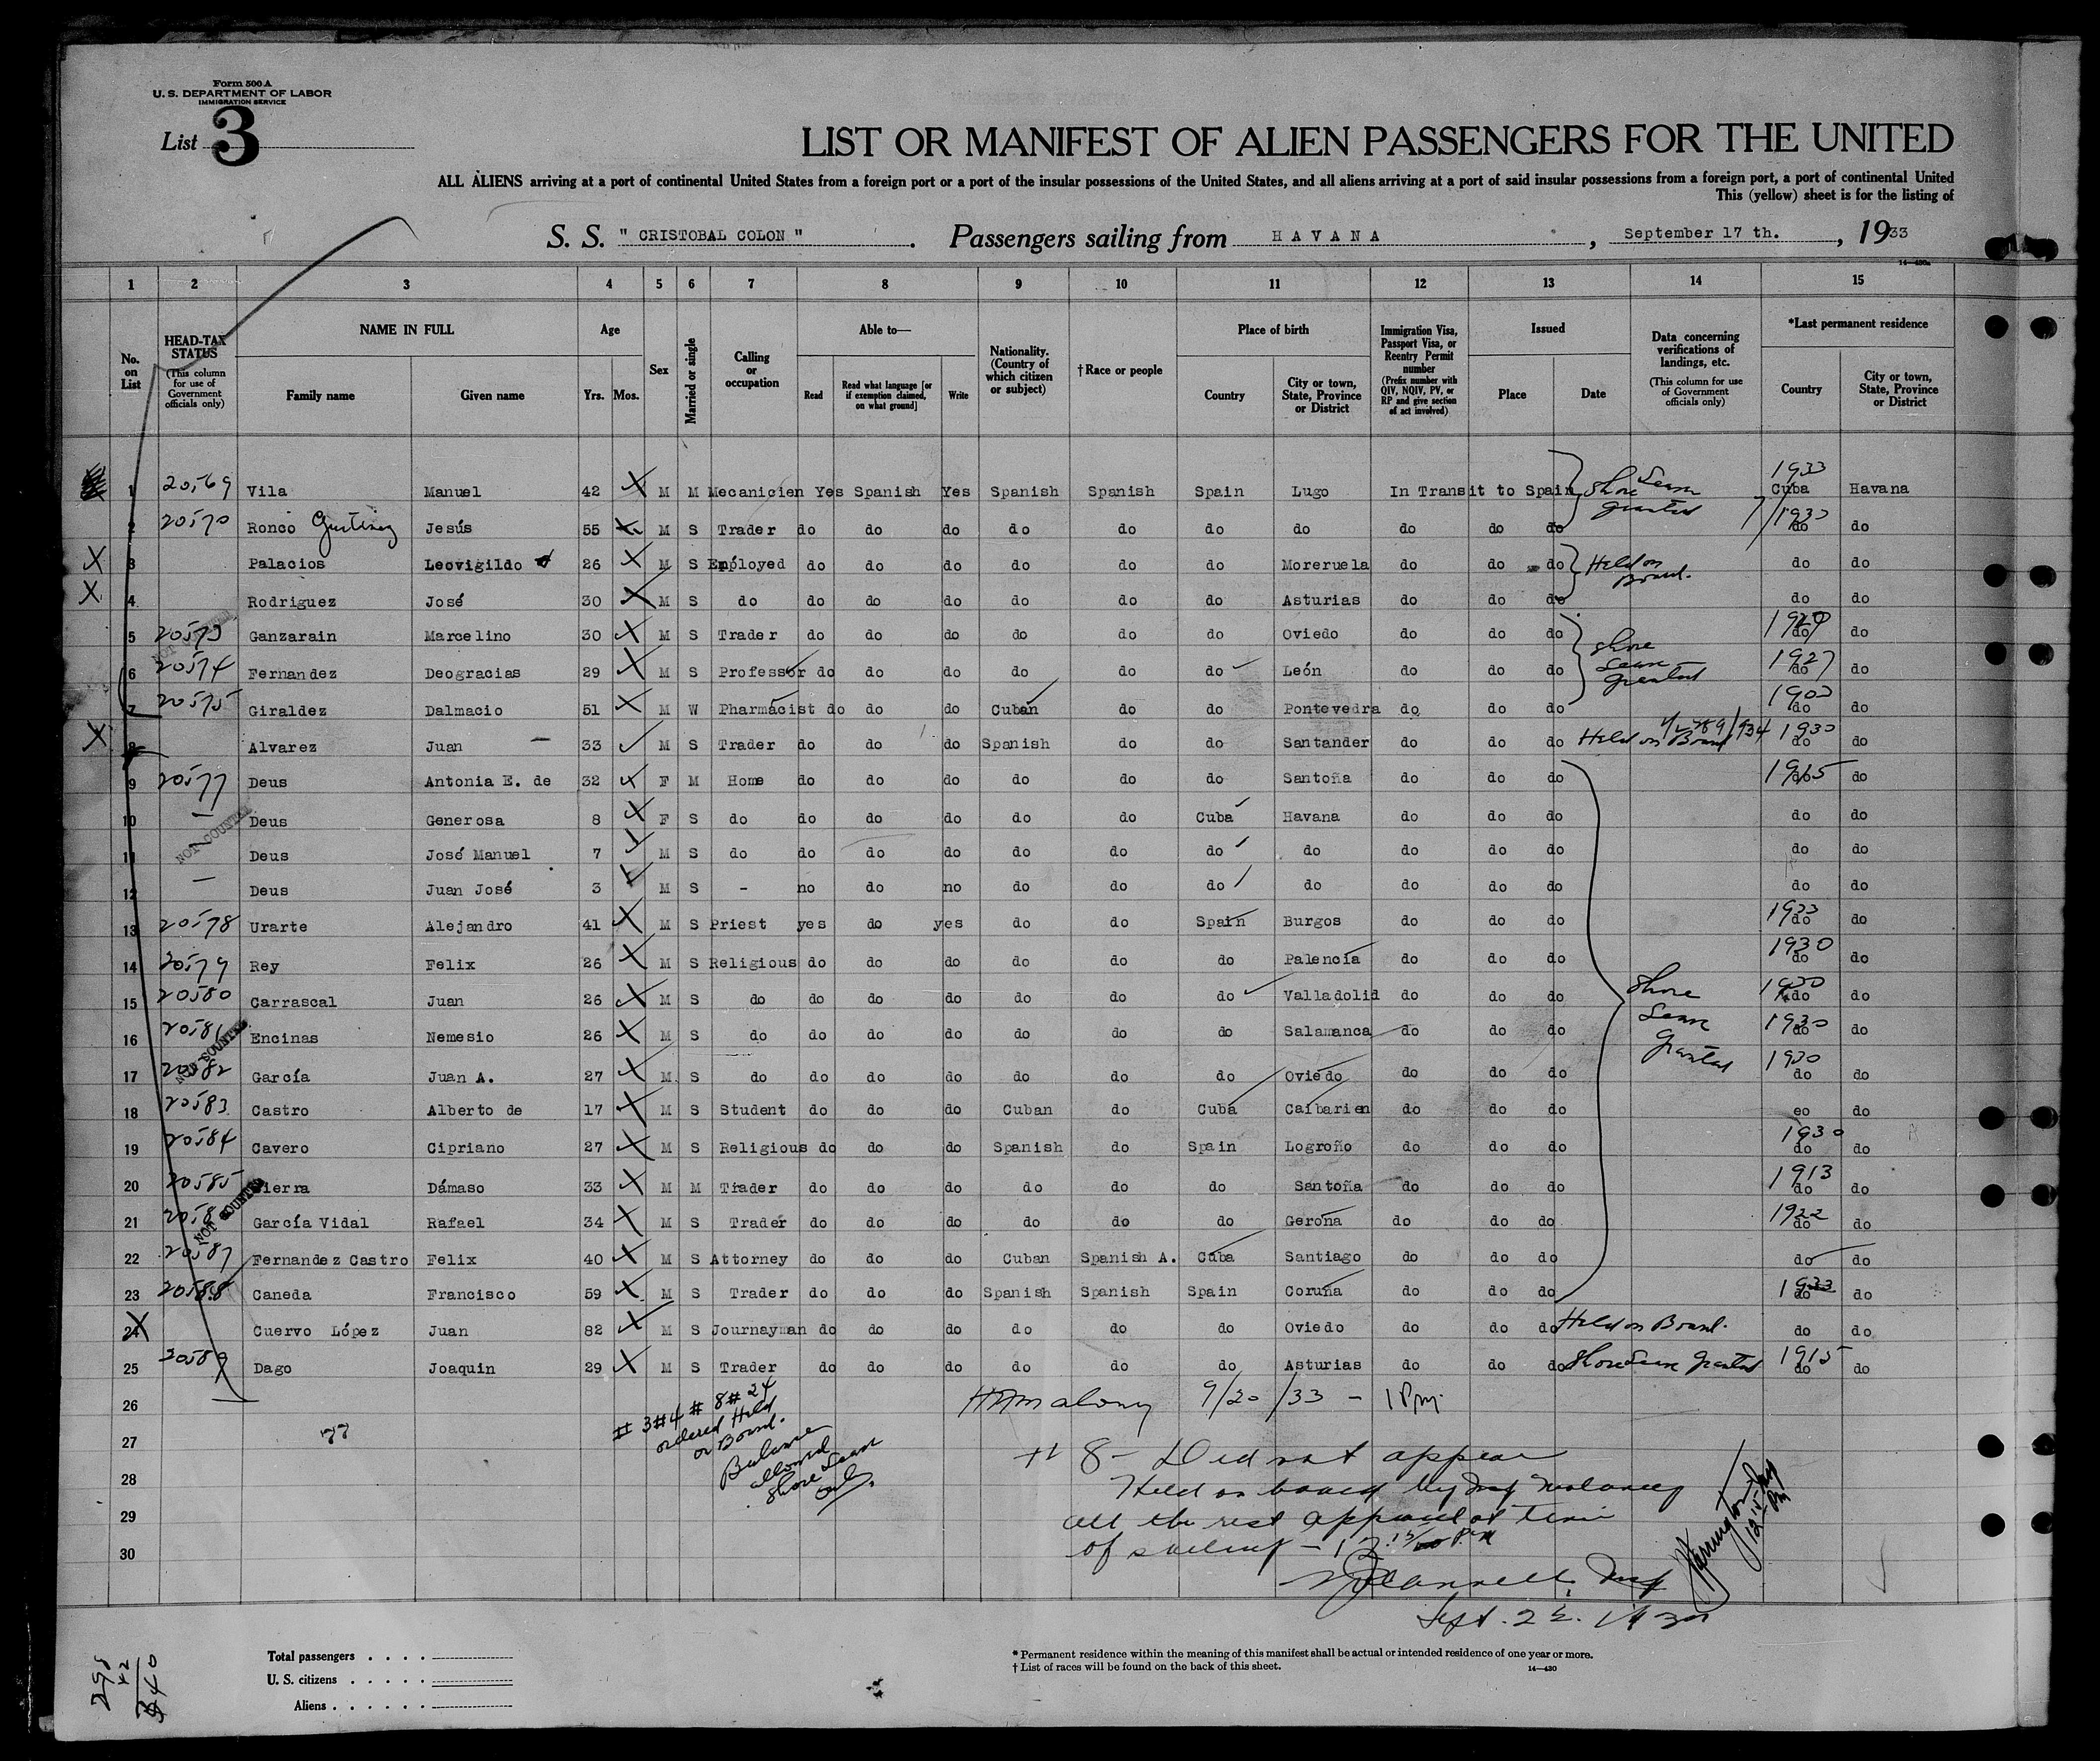 Form 500 A
U. S. DEPARTMENT OF LABOR
IMMIGRATION SERVICE
List 3
LIST OR MANIFEST OF ALIEN PASSENGERS FOR THE UNITED
ALL ALIENS arriving at a port of continental United States from a foreign port or a port of the insular possessions of the United States, and all aliens arriving at a port of said insular possessions from a foreign port, a port of continental United
This (yellow) sheet is for the listing of
S. S. " CRISTOBAL COLON " . Passengers sailing from HAVANA , September 17 th. , 1933
14—430a
1 2 3 4 5 6 7 8 9 10 11 12 13 14 15
No. on List
HEAD-TAX STATUS (This column for use of Government officials only)
NAME IN FULL Family name Given name
Age Yrs. Mos.
Sex
Married or single
Calling or occupation
Able to— Read Read what language [or if exemption claimed, on what ground] Write
Nationality. (Country of which citizen or subject)
†Race or people
Place of birth Country City or town, State, Province or District
Immigration Visa, Passport Visa, or Reentry Permit number (Prefix number with QIV, NQIV, PV, or RP and give section of act involved)
Issued Place Date
Data concerning verifications of landings, etc. (This column for use of Government officials only)
*Last permanent residence Country City or town, State, Province or District
1 20569 Vila Manuel 42 M M Mecanicien Yes Spanish Yes Spanish Spanish Spain Lugo In Transit to Spain Shore Leave granted 1933 Cuba Havana
2 20570 Ronco Jesús 55 M S Trader do do do do do do do do do do 1933 do do
X 3 Palacios Leovigildo 26 M S Employed do do do do do do Moreruela do do do Held on Board. do do
X 4 Rodriguez José 30 M S do do do do do do do Asturias do do do do do
5 20573 Ganzarain Marcelino 30 M S Trader do do do do do do Oviedo do do do Shore Leave Granted 1929 do do
6 20574 Fernandez Deogracias 29 M S Professor do do do do do do León do do do 1927 do do
7 20575 Giraldez Dalmacio 51 M W Pharmacist do do do Cuban do do Pontevedra do do do 1903 do do
X 8 Alvarez Juan 33 M S Trader do do do Spanish do do Santander do do do Held on Board 1930 do do
9 20577 Deus Antonia E. de 32 F M Home do do do do do do Santoña do do do 1915 do do
10 — Deus Generosa 8 F S do do do do do do Cuba Havana do do do do do
NOT COUNTED
11 Deus José Manuel 7 M S do do do do do do do do do do do do do
12 — Deus Juan José 3 M S - no do no do do do do do do do do do
13 20578 Urarte Alejandro 41 M S Priest yes do yes do do Spain Burgos do do do 1933 do do
14 20579 Rey Felix 26 M S Religious do do do do do do Palencía do do do 1930 do do
15 20580 Carrascal Juan 26 M S do do do do do do do Valladolid do do do Shore Leave Granted 1930 do do
16 20581 Encinas Nemesio 26 M S do do do do do do do Salamanca do do do 1930 do do
NOT COUNTED
17 20582 García Juan A. 27 M S do do do do do do do Oviedo do do do 1930 do do
18 20583 Castro Alberto de 17 M S Student do do do Cuban do Cuba Caíbarien do do do eo do
19 20584 Cavero Cipriano 27 M S Religious do do do Spanish do Spain Logroño do do do 1930 do do
20 20585 Sierra Dámaso 33 M M Trader do do do do do do Santoña do do do 1913 do do
NOT COUNTED
21 2058 García Vidal Rafael 34 M S Trader do do do do do do Gerona do do do 1922 do do
22 20587 Fernandez Castro Felix 40 M S Attorney do do do Cuban Spanish A. Cuba Santiago do do do do do
23 20588 Caneda Francisco 59 M S Trader do do do Spanish Spanish Spain Coruña do do do 1933 do do
24 X Cuervo López Juan 82 M S Journayman do do do do do do Oviedo do do do Held on Board. do do
25 20589 Dago Joaquin 29 M S Trader do do do do do do Asturias do do do Shore Leave Granted 1915 do do
26 9/20/33 – 1 Pm.
27 77
28
29
30
# 3 # 4 # 8 # 24
ordered Held
on Board.
Balance
allowed
Shore Leave
only.
# 8 – Did not appear
Held on board by Insp Maloney
all the rest appeared at time
of sailing –
Sept. 22.
298
42
340
Total passengers . . . .
U. S. citizens . . . . .
Aliens . . . . . .
* Permanent residence within the meaning of this manifest shall be actual or intended residence of one year or more.
† List of races will be found on the back of this sheet.
14—430